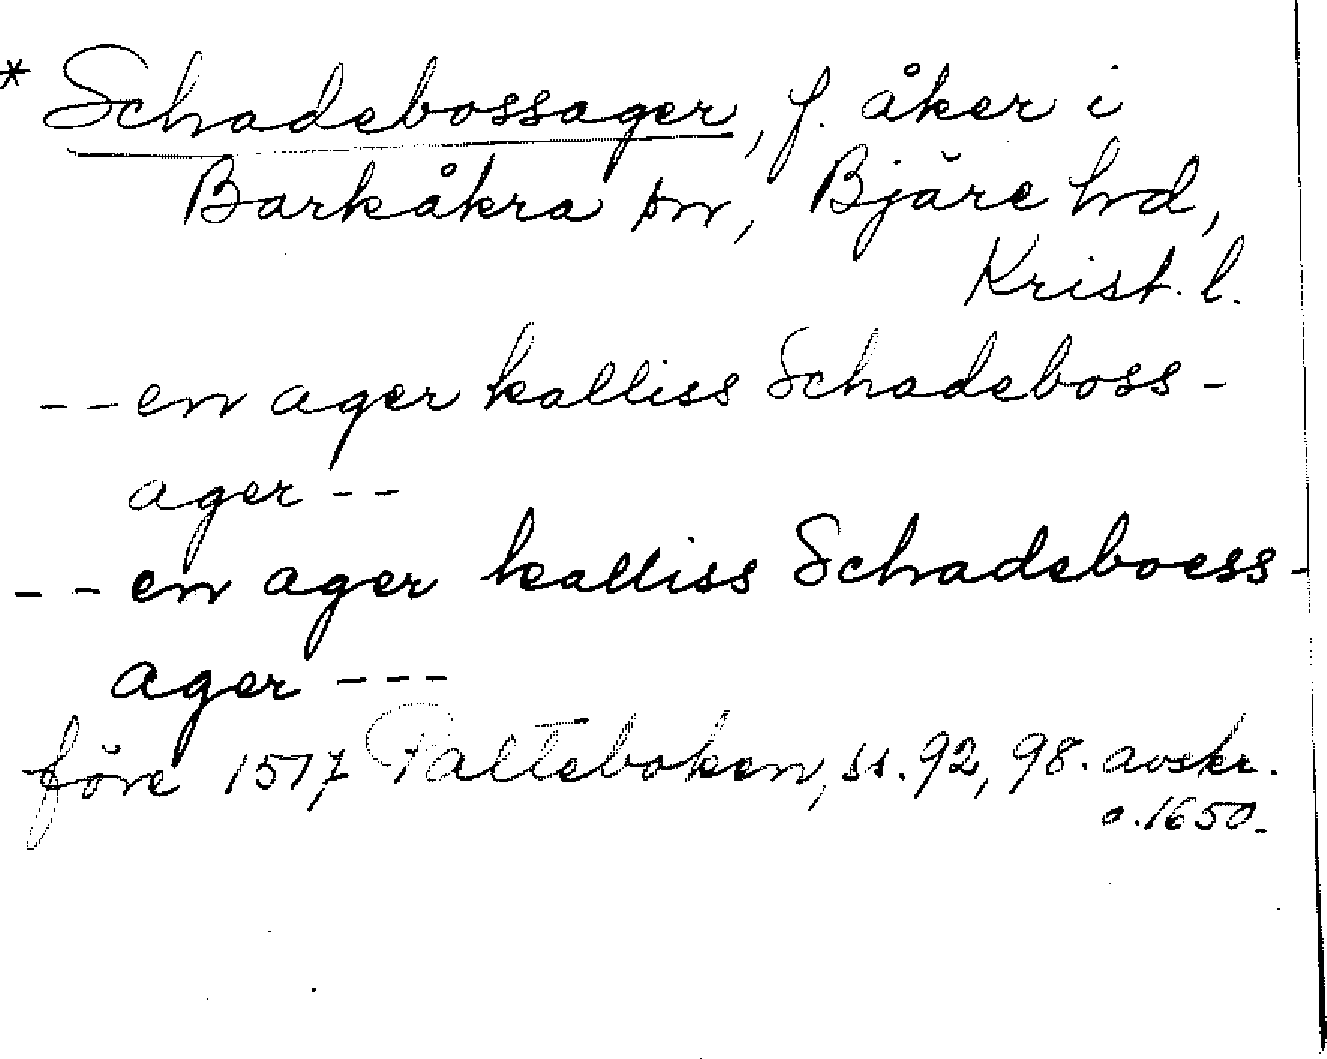 * Schadebossager, f. åker i
Barkåkra sn, Bjäre hd,
Krist. l.
-- en ager kalliss Schadeboss-
ager --
-- en ager kalliss Schadeboess-
ager ---
före 1517 Palteboken, ss. 92, 98. avskr.
o. 1650.